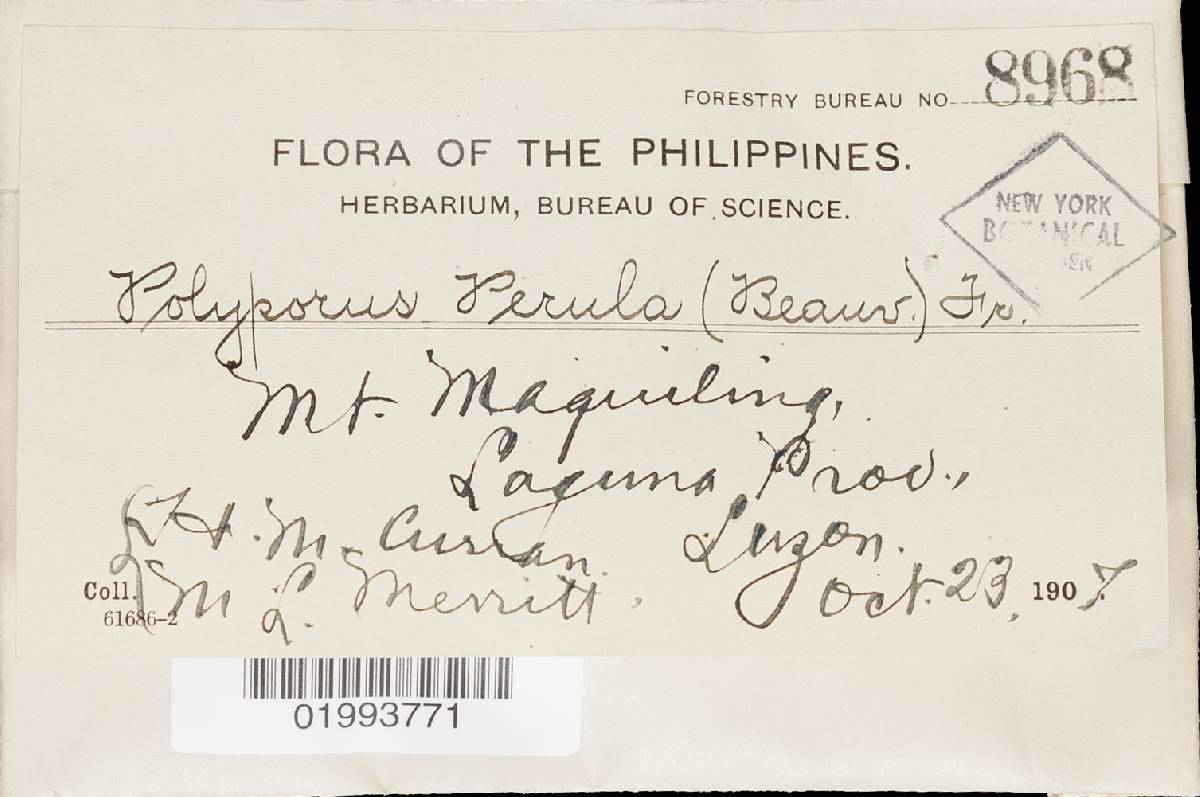 FORESTRY BUREAU NO. 8968
FLORA OF THE PHILIPPINES.
HERBARIUM, BUREAU OF SCIENCE.
NEW YORK
BOTANICAL
Polyporus Perula (Beauv.) Fr.
Mt. Maquiling,
Laguna Prov.,
Luzon.
H. M. Curran
Coll. M L. Merritt.
Oct. 23, 1907.
61686-2
01993771